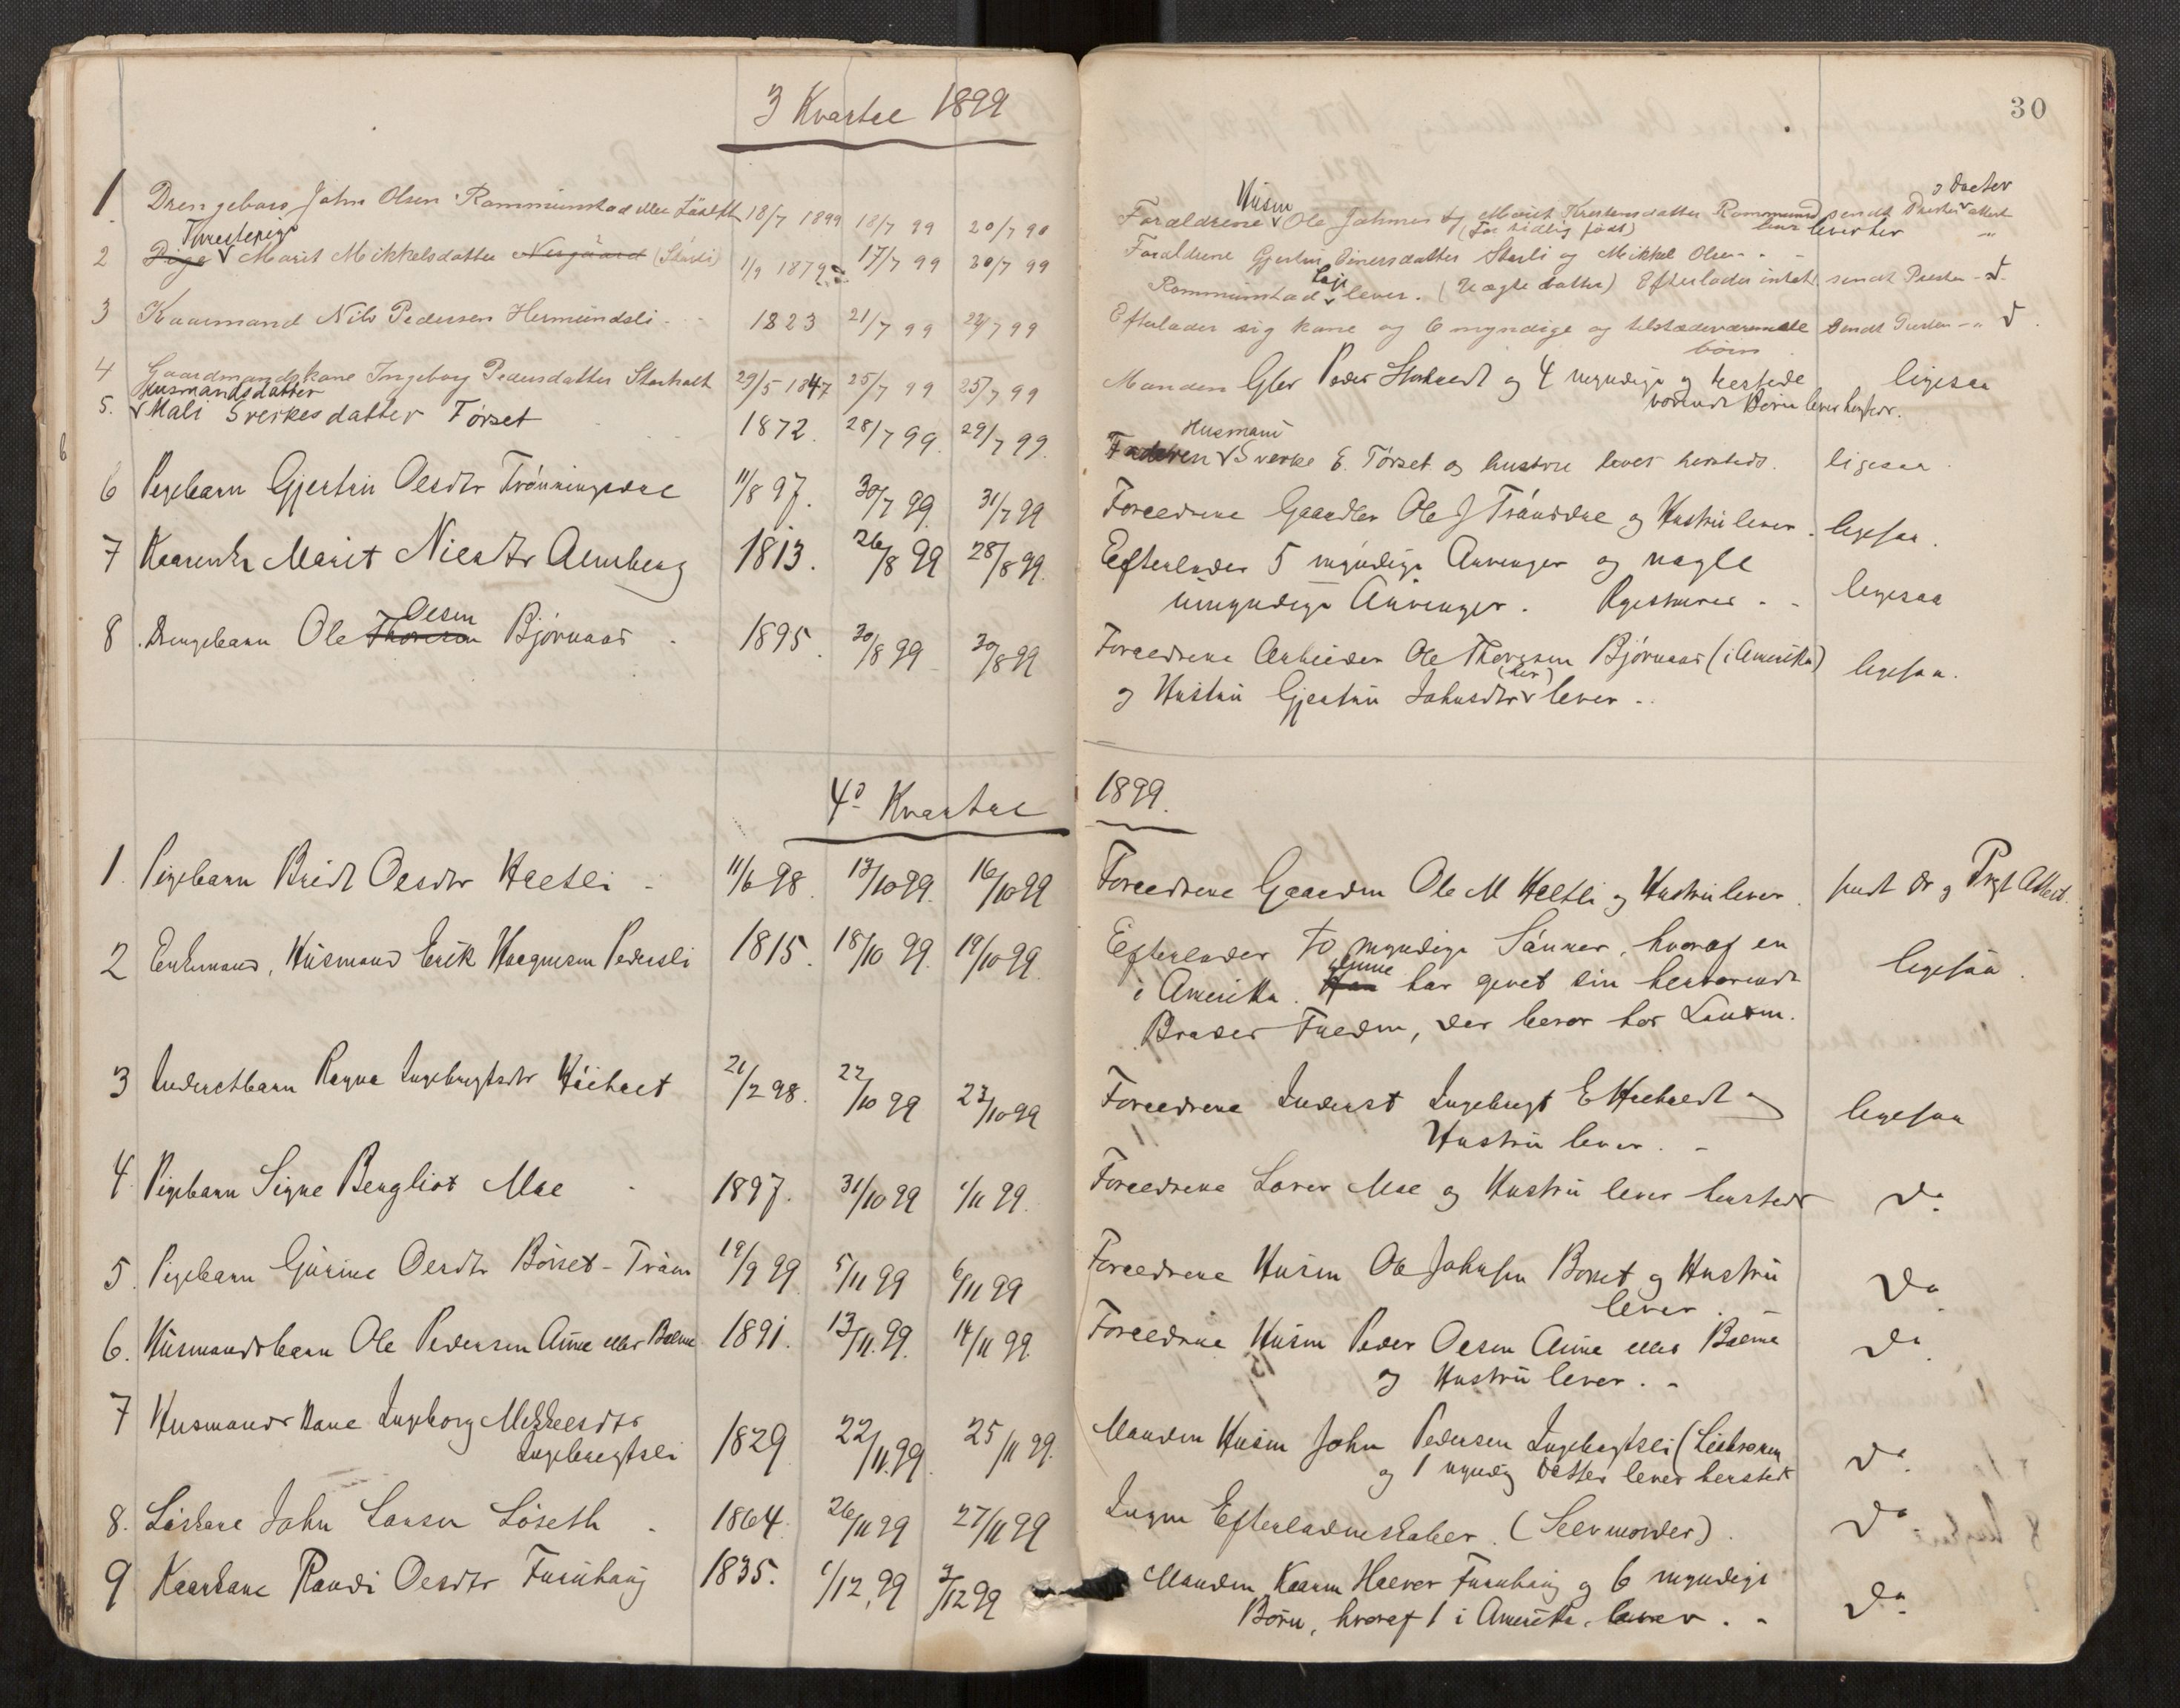 3 Kvartal 1899
30
1. Drengebarn John Olsen Rommunstad eller Løseth 18/7 1899 18/7 99 20/7 99
Husm
Foraldrene Ole Johnsen og Marit Krestensdatter Rommunds sendt Presten attest
(For tidlig født) lever her
Tjenestepige
2 Pige Marit Mikkelsdatter Nergaard (Storli) 1/9 1879 17/7 99 20/7 99
Foraldrene Gjertru Einersdatter Storli og Mikkel Olsen
Rommunstad lever. (Uægte datter) Efterlader intet sendt Presten
3 Kaarmand Nils Pedersen Hermundsli 1823 21/7 99 22/7 99
Efterlader sig kone og 6 myndige og tilstædeværende sendt Presten
børn
4 Gaardmandskone Ingeborg Pedersdatter Storholt 29/5 1847 25/7 99 25/7 99
Manden Gbr Peder Storholt og 4 myndige og herstede ligesaa
værende Børn lever herstede.
Husmandsdatter
5. Mali Sverkesdatter Tørset 1872. 28/7 99. 29/7 99.
Husmand
Faderen Sverke E. Tørset og hustru lever hersteds. ligesaa
6 Pigebarn Gjertru Olesdtr Trønningsdal 11/8 97. 30/7 99. 31/7 99
Forældrene Gaardbr Ole J Trønsdal og Hustru lever. ligesaa.
7 Kaarenke Marit Nilsdtr Almberg 1813. 26/8 99 28/8 99.
Efterlader 5 myndige Arvinger og nogle
umyndige Arvinger. Registreres ligesaa
Olsen
8. Drengebarn Ole Thoresen Bjørnaas 1895. 30/8 99 30/8 99
Forældrene Arbeider Ole Thoresen Bjørnaas (i Amerika) ligesaa.
(her)
og Hustru Gjertru Johnsdtr lever
4de Kvartal 1899.
1. Pigebarn Brit Olesdtr Hæltli 11/6 98. 13/10 99. 16/10 99
Forældrene Gaardm Ole M Hæltli og Hustru lever. sendt Dr og Prest Attest.
2 Enkemand, Husmand Erik Haagensen Pedersli 1815. 18/10 99. 19/10 99.
Efterlader to myndige Sønner, hvoraf en ligesaa.
denne
i Amerika. Han har givet sin herværende
Broder Fuldm, der bor hos Lensm.
3 Inderstbarn Ragna Ingebrigtsdtr Høiholt 21/2 98. 22/10 99 23/10 99
Forældrene Inderst Ingebrigt E Høiholt og ligesaa
Hustru lever.
4. Pigebarn Signe Bergliot Moe 1897. 31/10 99 1/11 99.
Forældrene Lærer Moe og Hustru lever hersteds Do
5. Pigebarn Gurine Olesdtr Børset-Trøen 19/9 99 5/11 99 6/11 99
Forældrene Husm Ole Johnsen Børset og Hustru Do
lever.
6. Husmandsbarn Ole Pedersen Aune eller Bolme 1891. 13/11. 99. 14/11 99.
Forældrene Husm Peder Olsen Aune eller Bolme Do
og Hustru lever.
7 Husmands Kone Ingeborg Mikkelsdtr
Ingebrigtsli 1829 22/11. 99. 25/11 99.
Manden Husm John Pedersen Ingebrigtsli
og 1 myndig datter lever hersted Do
8. Løskarl John Larsen Løseth 1864. 26/11 99 27/11 99
Ingen Efterladenskaber. (Selvmorder). Do
9 Kaarkone Randi Olesdtr Furuhaug 1835. 1/12, 99 3/12 99
Manden Kaarm Halvor Furuhaug og 6 myndige
Børn, hvoraf 1 i Amerika, lever. Do